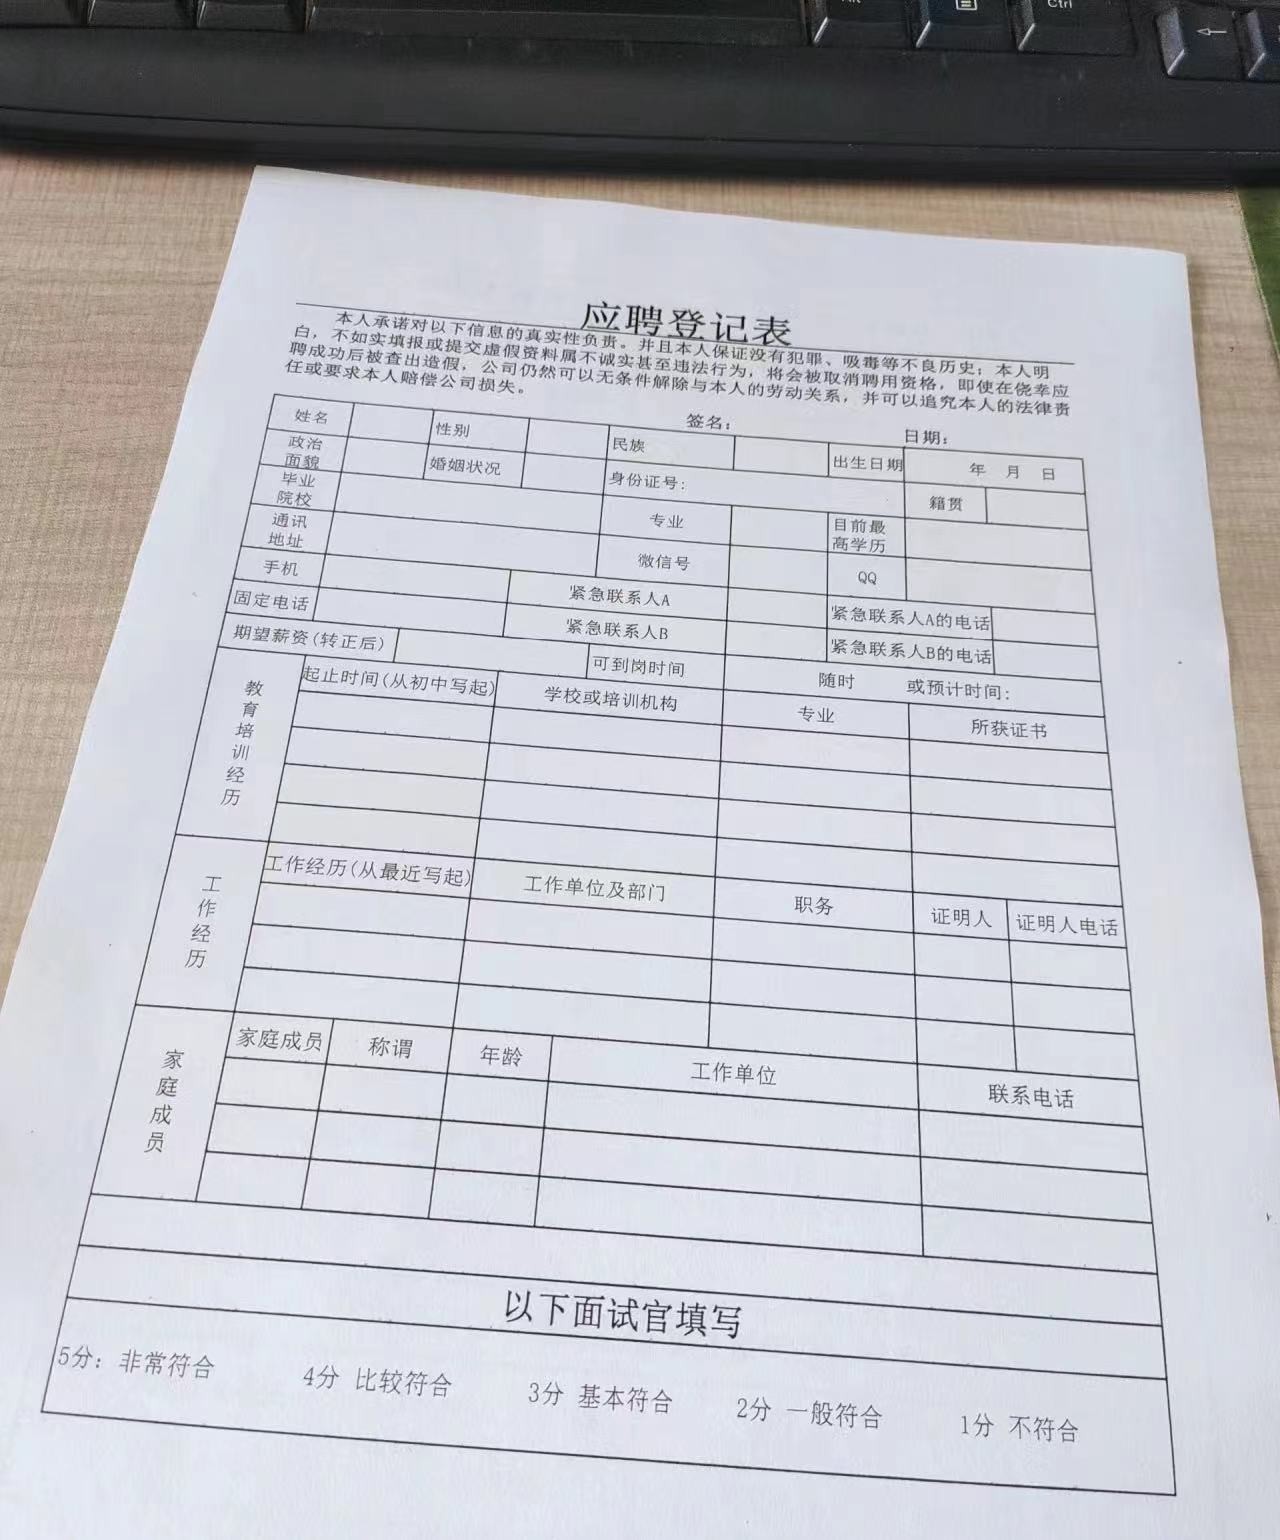 Ctrl
应聘登记表
本人承诺对以下信息的真实性负责。并且本人保证没有犯罪、吸毒等不良历史；本人明
白，不如实填报或提交虚假资料属不诚实甚至违法行为，将会被取消聘用资格，即使在侥幸应
聘成功后被查出造假，公司仍然可以无条件解除与本人的劳动关系，并可以追究本人的法律责
任或要求本人赔偿公司损失。
签名： 日期：
姓名 性别 民族 出生日期 年 月 日
政治面貌 婚姻状况 身份证号: 籍贯
毕业院校 专业 目前最高学历
通讯地址 微信号 QQ
手机 紧急联系人A 紧急联系人A的电话
固定电话 紧急联系人B 紧急联系人B的电话
期望薪资(转正后) 可到岗时间 随时 或预计时间:
教育培训经历 起止时间(从初中写起) 学校或培训机构 专业 所获证书
工作经历 工作经历(从最近写起) 工作单位及部门 职务 证明人 证明人电话
家庭成员 家庭成员 称谓 年龄 工作单位 联系电话
以下面试官填写
5分：非常符合 4分 比较符合 3分 基本符合 2分 一般符合 1分 不符合